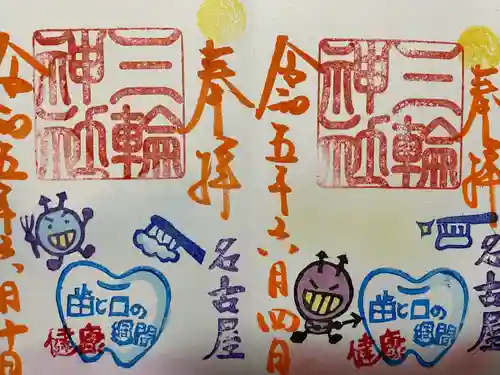 奉拝
三輪
神社
名古屋
歯と口の
健康週間
令和五年六月十日
奉拝
三輪
神社
名古屋
歯と口の
健康週間
令和五年六月四日